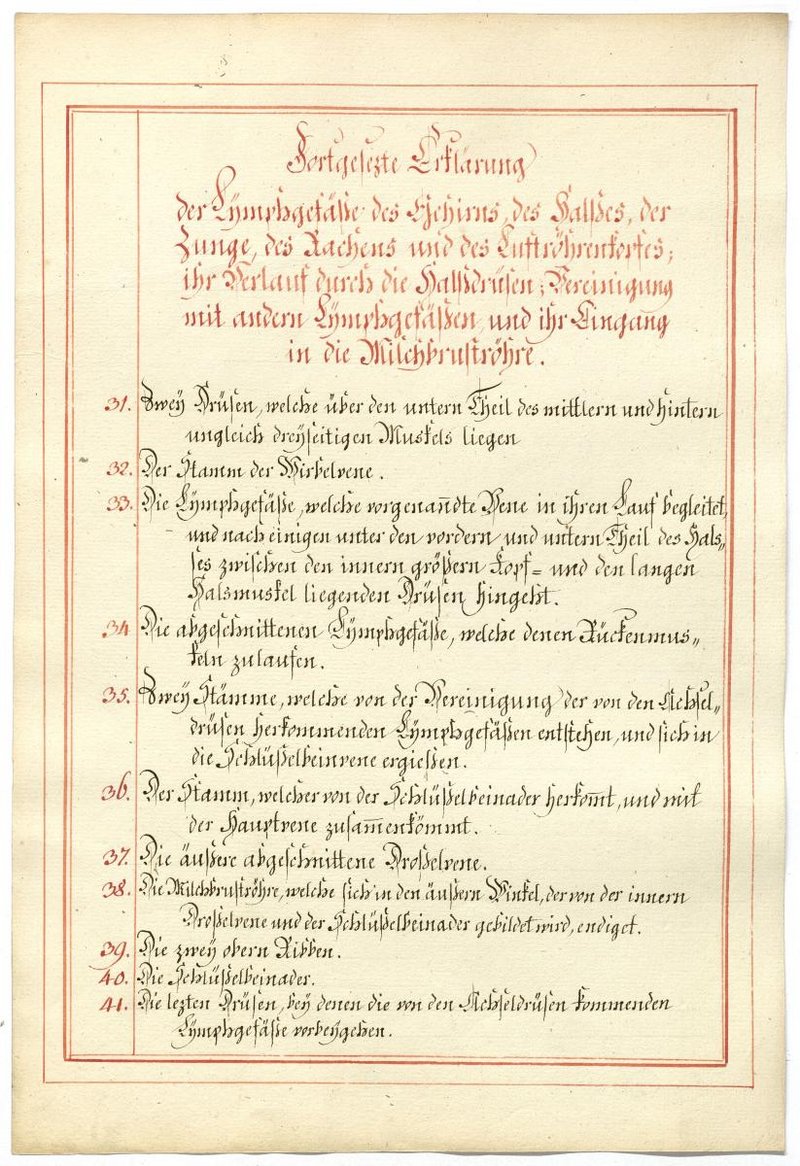 Fortgesezte Erklärung
der Lÿmphgefäße des Gehirns, des Halßes, der
Zunge, des Rachens und des Luftröhrenkopfes;
ihr Verlauf durch die Halßdrüsen; Vereinigung
mit andern Lÿmphgefäßen, und ihr Eingan̅g
in die Milchbruströhre.
31. Zweÿ Drüsen, welche über den untern Theil des mittlern und hintern
ungleich dreÿseitigen Muskels liegen
32. Der Stamm der Wirbelvene.
33. Die Lÿmphgefäße, welche vorgenan̅dte Vene in ihren Lauf begleitet,
und nach einigen unter den vordern und untern Theil des Hals„
ses zwischen den innern größern Kopf= und den langen
Halsmuskel liegenden Drüsen hingeht.
34 Die abgeschnittenen Lÿmphgefäße, welche denen Rückenmus„
keln zulaufen.
35. Zweÿ Stämme, welche von der Vereinigung der von den Achsel„
drüsen herkommenden Lÿmphgefäßen entstehen, und sich in
die Schlüßelbeinvene ergießen.
36. Der Stamm, welcher von der Schlüßelbeinader herkom̅t, und mit
der Hauptvene zusam̅enkömmt.
37. Die äußere abgeschnittene Droßelvene.
38. Die Milchbruströhre, welche sich in den äußern Winkel, der von der innern
Droßelvene und der Schlüßelbeinader gebildet wird, endiget.
39. Die zweÿ obern Ribben.
40. Die Schlüßelbeinader.
41. Die lezten Drüsen, beÿ denen die von den Achseldrüsen kommenden
Lÿmphgefäße vorbeÿgehen.